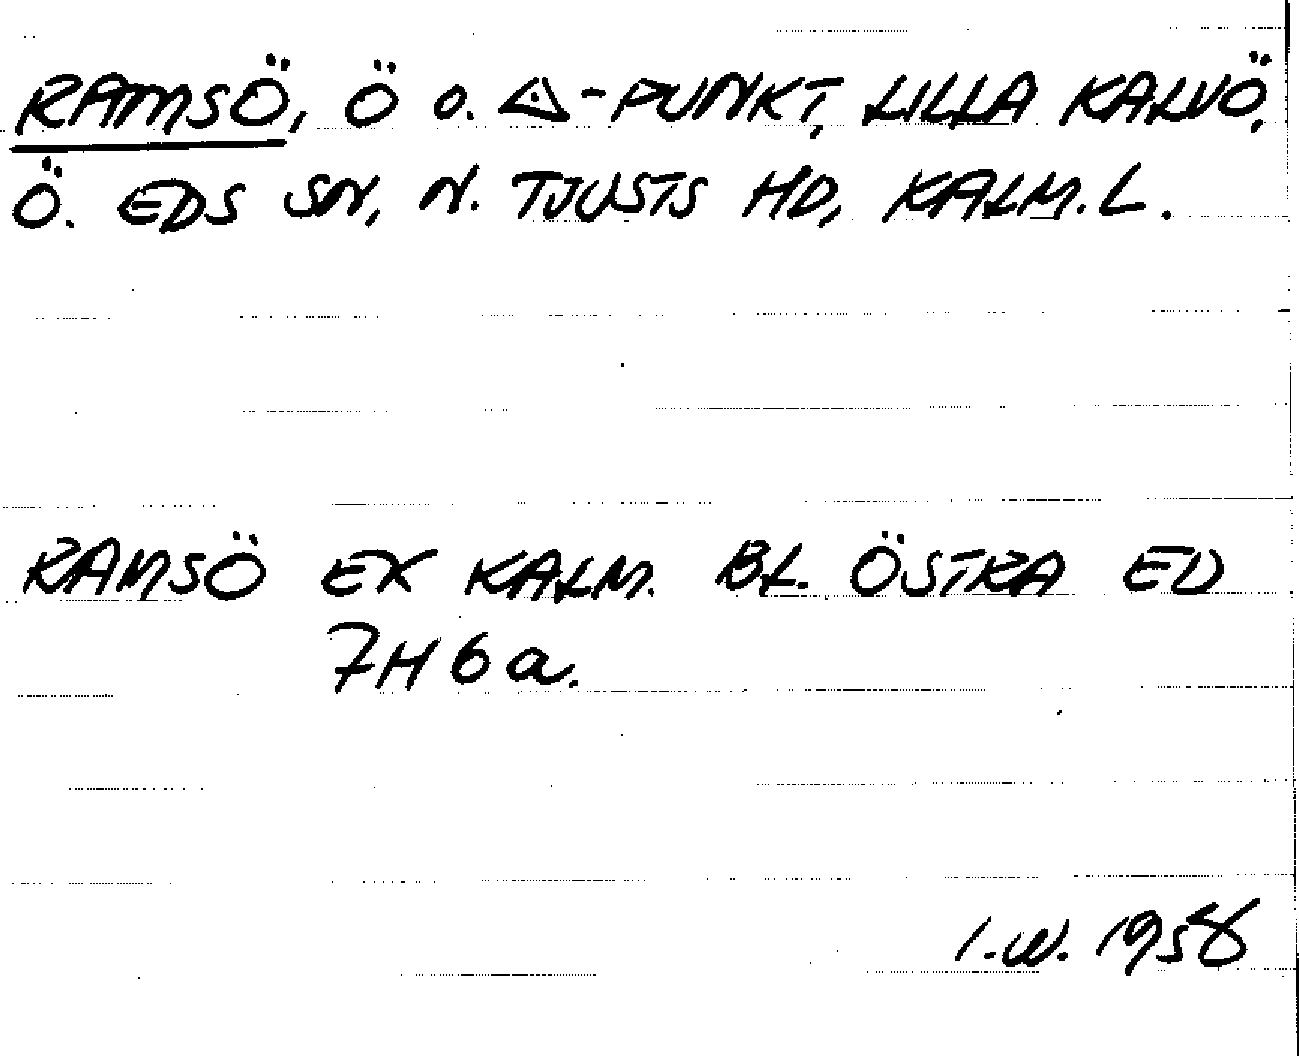 RAMSÖ, Ö o. △-PUNKT, LILLA KALVÖ,
Ö. EDS SN, N. TJUSTS HD, KALM. L.
RAMSÖ EX KALM. BL. ÖSTRA ED
7H6a.
I.W. 1958